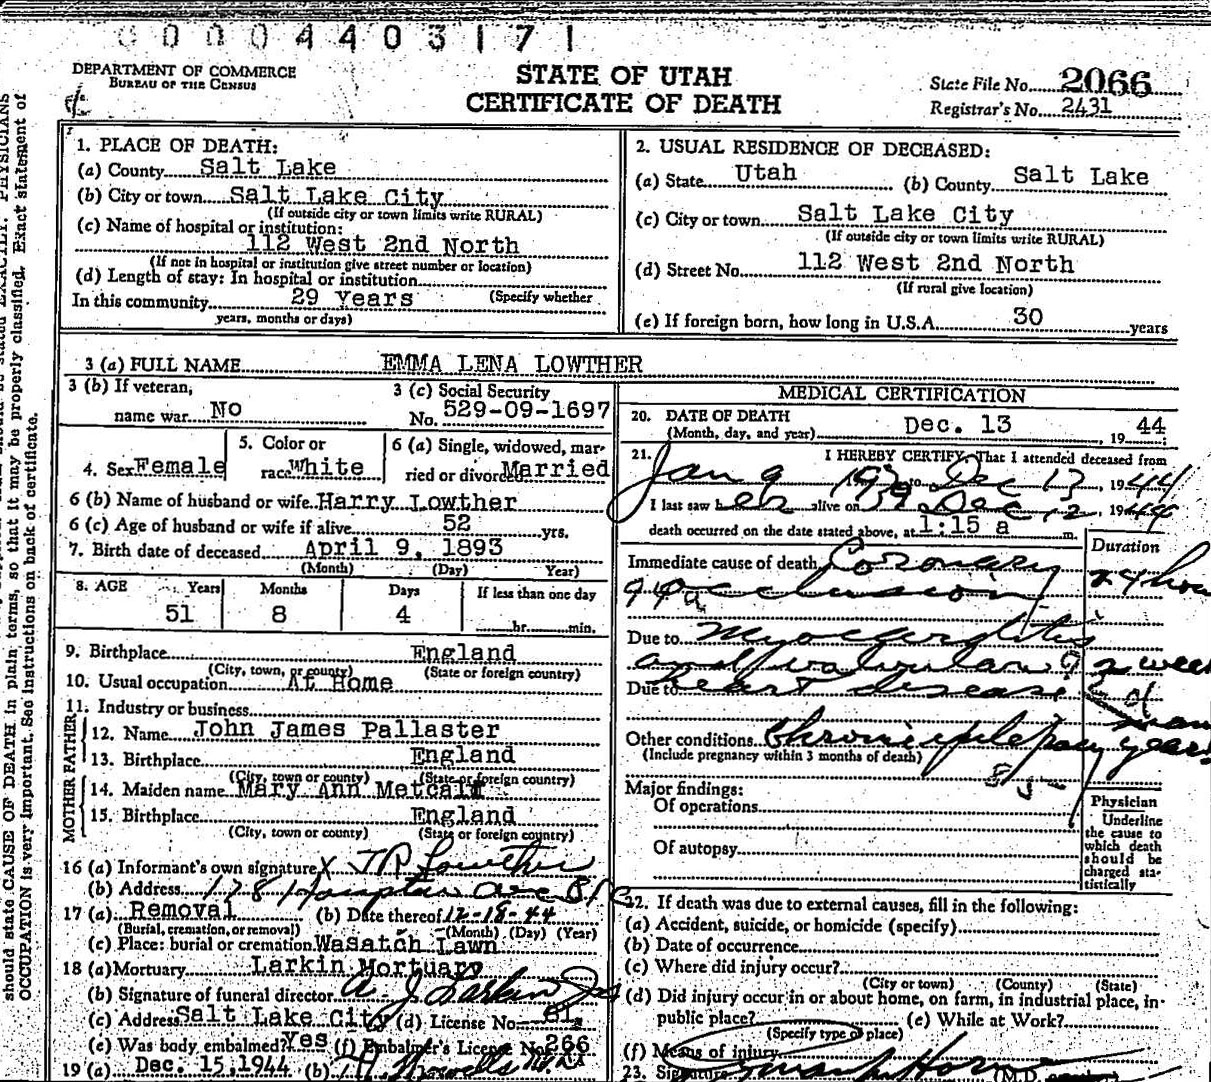 00004403171
DEPARTMENT OF COMMERCE
BUREAU OF THE CENSUS
STATE OF UTAH
CERTIFICATE OF DEATH
State File No. 2066
Registrar's No. 2431
1. PLACE OF DEATH:
(a) County Salt Lake
(b) City or town Salt Lake City
(If outside city or town limits write RURAL)
(c) Name of hospital or institution:
112 West 2nd North
(If not in hospital or institution give street number or location)
(d) Length of stay: In hospital or institution
In this community 29 Years (Specify whether
years, months or days)
2. USUAL RESIDENCE OF DECEASED:
(a) State Utah (b) County Salt Lake
(c) City or town Salt Lake City
(If outside city or town limits write RURAL)
(d) Street No. 112 West 2nd North
(If rural give location)
(e) If foreign born, how long in U.S.A. 30 years
3 (a) FULL NAME EMMA LENA LOWTHER
3 (b) If veteran,
name war No
3 (c) Social Security
No. 529-09-1697
4. Sex Female
5. Color or
race White
6 (a) Single, widowed, mar-
ried or divorced Married
6 (b) Name of husband or wife Harry Lowther
6 (c) Age of husband or wife if alive 52 yrs.
7. Birth date of deceased April 9, 1893
(Month) (Day) Year)
8. AGE Years Months Days If less than one day
51 8 4 hr. min.
9. Birthplace England
(City, town, or county) (State or foreign country)
10. Usual occupation At Home
11. Industry or business
FATHER
12. Name John James Pallaster
13. Birthplace England
(City, town or county) (State or foreign country)
MOTHER
14. Maiden name Mary Ann Metcalf
15. Birthplace England
(City, town or county) (State or foreign country)
16 (a) Informant's own signature X J R Lowther
(b) Address 128 Hampton Ave
17 (a) Removal (b) Date thereof 12-18-44
(Burial, cremation, or removal) (Month) (Day) (Year)
(c) Place: burial or cremation Wasatch Lawn
18 (a) Mortuary Larkin Mortuary
(b) Signature of funeral director A. J. Larkin
(c) Address Salt Lake City (d) License No.
(e) Was body embalmed? Yes (f) Embalmer's License No. 266
19 (a) Dec. 15, 1944 (b)
MEDICAL CERTIFICATION
20. DATE OF DEATH
(Month, day, and year) Dec. 13, 19 44
21. I HEREBY CERTIFY, That I attended deceased from
Jan 9 1939 to Dec 13, 1944
I last saw her alive on Dec 12, 1944
death occurred on the date stated above, at 1:15 a m.
Duration
Immediate cause of death Coronary
occlusion
24 hou
Due to Myocarditis
and valvular
2 wee
Due to heart disease
Other conditions Chronic epilepsy years
(Include pregnancy within 3 months of death)
Major findings:
Of operations
Of autopsy
Physician
Underline
the cause to
which death
should be
charged sta-
tistically
22. If death was due to external causes, fill in the following:
(a) Accident, suicide, or homicide (specify)
(b) Date of occurrence
(c) Where did injury occur?
(City or town) (County) (State)
(d) Did injury occur in or about home, on farm, in industrial place, in
public place? (e) While at Work?
(Specify type of place)
(f) Means of injury
23. Signature (M.D.
should state CAUSE OF DEATH in plain terms, so that it may be properly classified. Exact statement of
OCCUPATION is very important. See instructions on back of certificate.